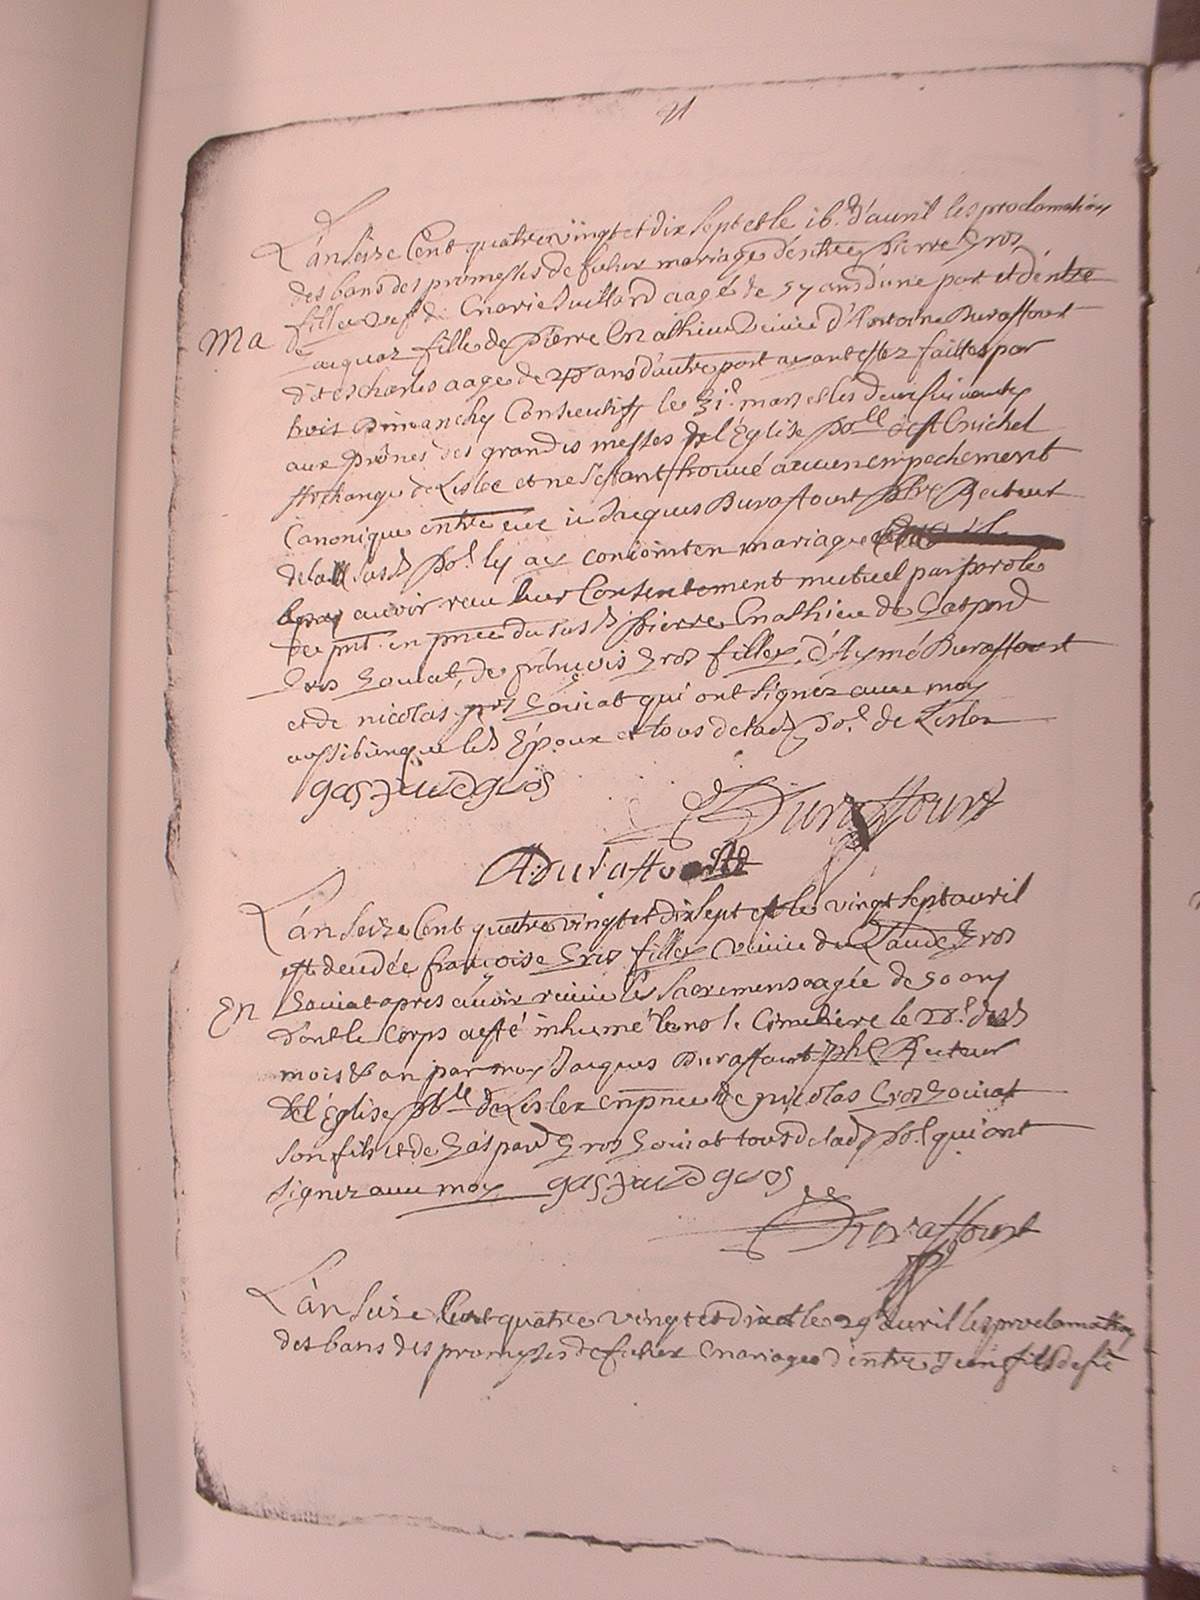 L'an seize Cent quatre vingt et dix sept et le 16.e d'auril les proclamations
des bans des promesses de futur mariage d'entre Pierre Gros
fillex vef de Marie Juillard aagé de 57 ans d'une part et d'entre
Ma
Jacquaz fille de Pierre Mathieu veuue d'Antoine Duraffourt
dit es charles aagé de 40 ans d'autre part ayant estez faittes par
trois Dimanches Consecutifs le 31.e mars et les deux suiuants
aux Prônes des grandes messes de l'Église po.lle de st Michel
Archange de Lislex et ne s'estant trouué aucun empechement
Canonique entre eux ie Jacques Duraffourt pbre Recteur
de la susd po.e les ay conioint en mariage
apres auoir receu leur Consentement mutuel par parole
de pnt. en pnce du susd Pierre Mathieu de Gaspard
Gros Gouiat, de françois Gros fillex, d'Aymé Duraffourt
et de nicolas gros Gouiat qui ont signez auec moy
aussi bien que lesd Époux et tous de lad po.e de Lislex
gaspard gros
Duraffourt
A: Duraffourd
L'an seize Cent quatre vingt et dix sept et le vingt sept auril
est decedée françoise Gros fillex veuue de Claude Gros
En
Gouiat apres auoir receue les sacremens aagée de 50 ans
dont le Corps a esté inhumé dans le Cimetiere le 28.e desd
mois & an par moy Jacques Duraffourt pbre Recteur
de l'Église po.lle de Lislex en pnce de nicolas Gros Gouiat
son fils et de Gaspard Gros Gouiat tous de lad po.e qui ont
signez auec moy gaspard gros
Duraffourt
L'an seize Cent quatre vingt et dix et le 29 auril les proclamations
des bans des promesses de futur mariage d'entre Jean fils de